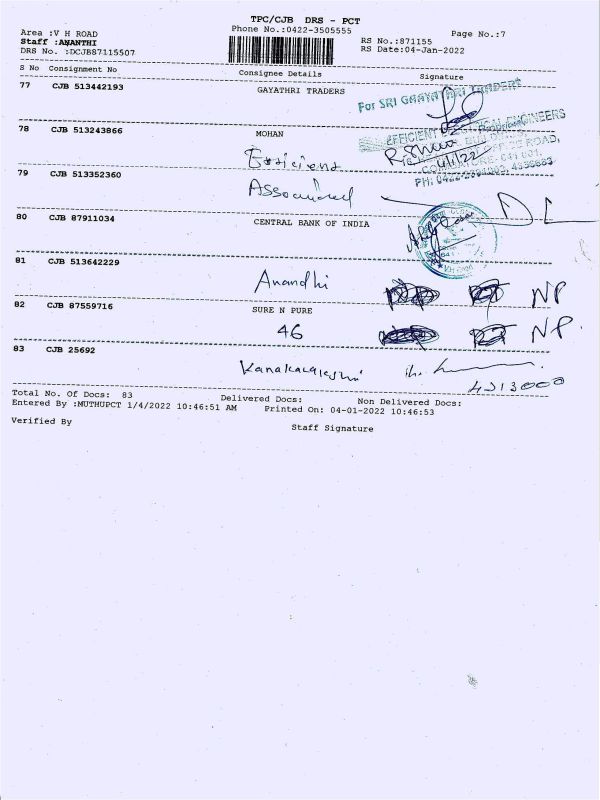 TPC/CJB DRS - PCT
Area :V H ROAD
Phone No.:0422-3505555
Page No.:7
Staff :ANANTHI
RS No.:871155
DRS No. :DCJBS87115507
RS Date:04-Jan-2022
S No Consignment No Consignee Details Signature
77 CJB 513442193 GAYATHRI TRADERS
For SRI GAAYATHRI TRADERS
78 CJB 513243866 MOHAN
EFFICIENT ELECTRICAL ENGINEERS
Efficient
4/1/22
79 CJB 513352360
Associated
DL
80 CJB 87911034 CENTRAL BANK OF INDIA
81 CJB 513642229
Anandhi NP
82 CJB 87559716 SURE N PURE
46 NP.
83 CJB 25692
Kanakalakshmi
Total No. Of Docs: 83 Delivered Docs: Non Delivered Docs:
Entered By :MUTHUPCT 1/4/2022 10:46:51 AM Printed On: 04-01-2022 10:46:53
Verified By Staff Signature